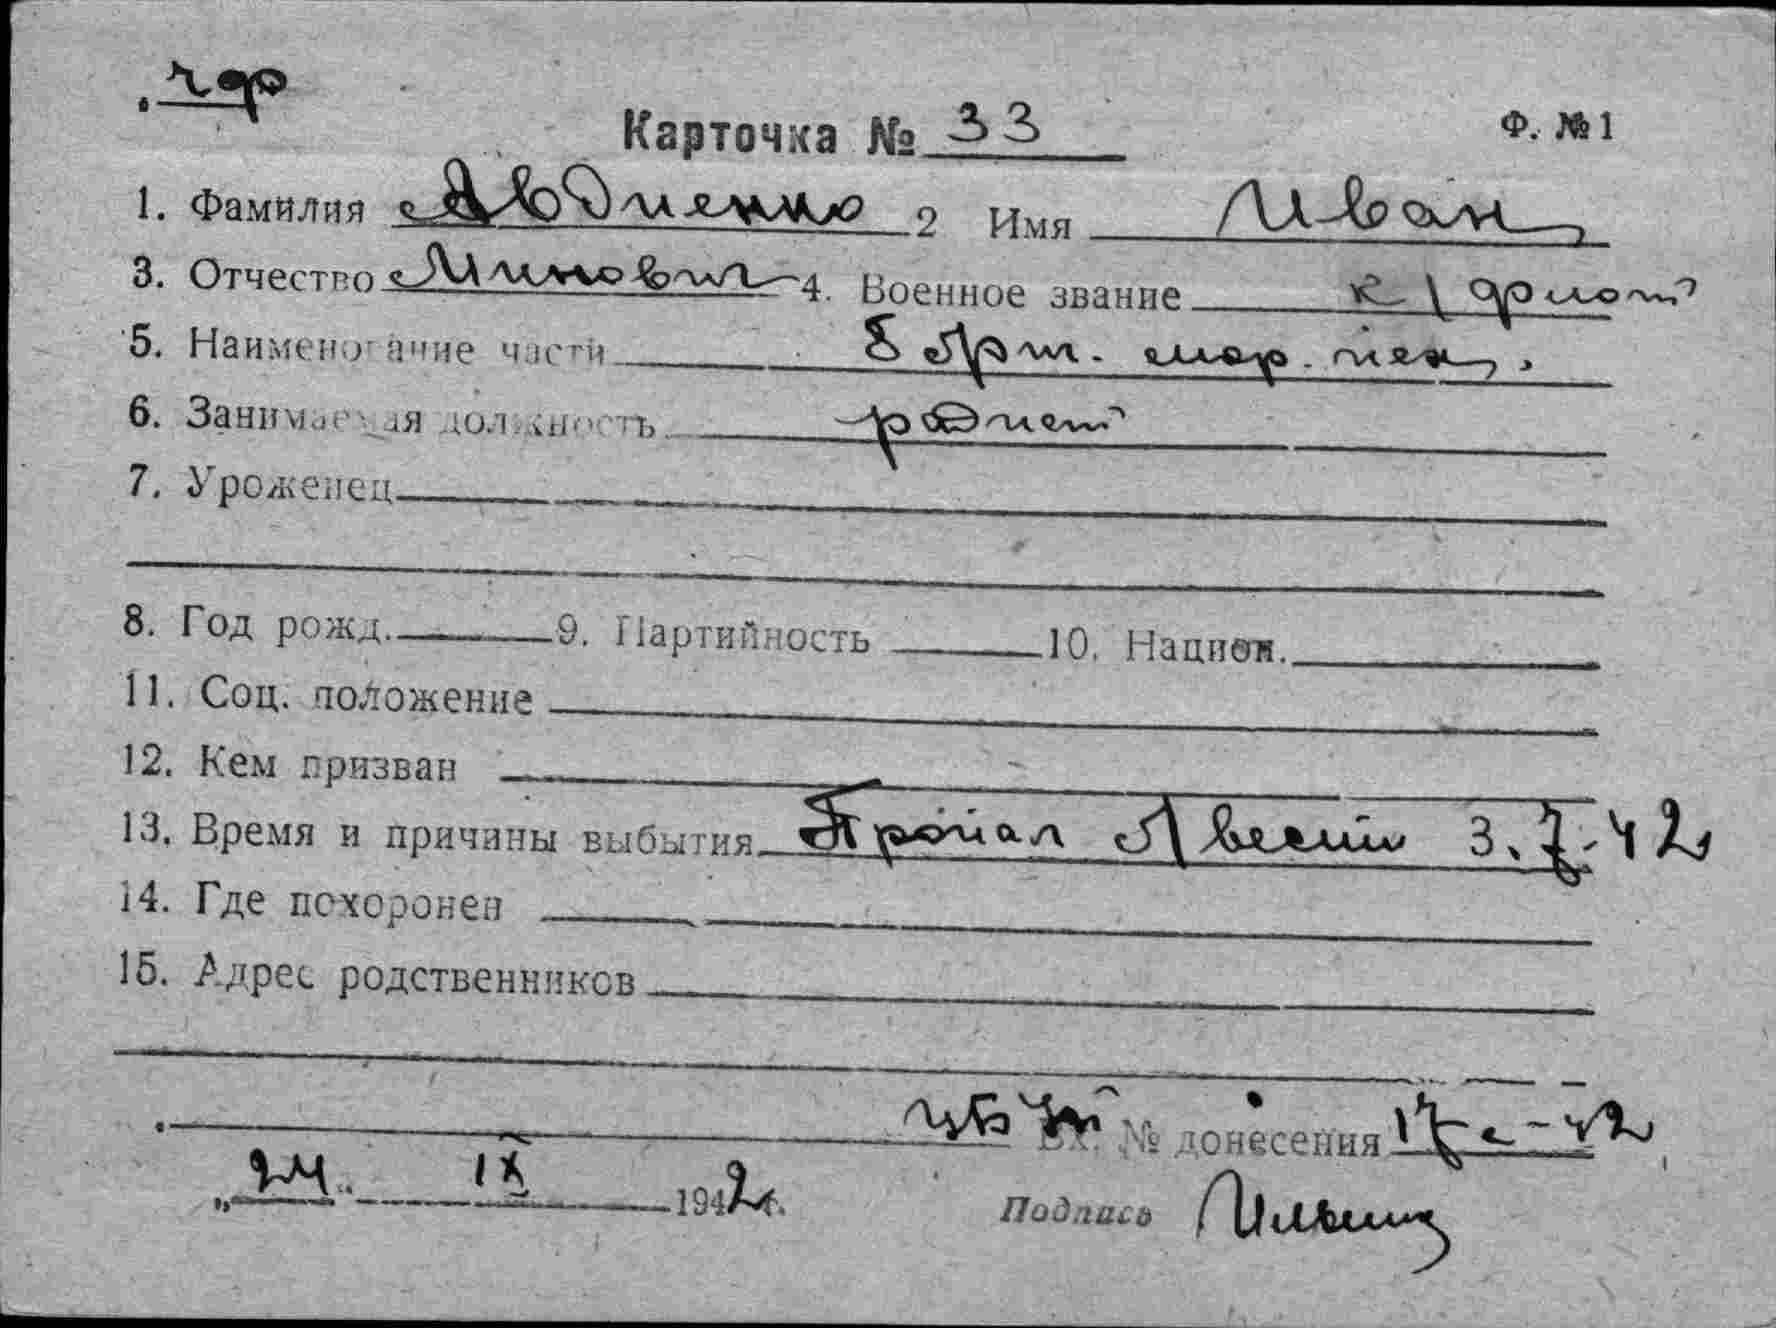 чф
Карточка № 33 Ф. № 1
1. Фамилия Авдиенко 2 Имя Иван
3. Отчество Минович 4. Военное звание к/флот
5. Наименование части 8 Арт. мор. тех,
6. Занимаемая должность радист
7. Уроженец
8. Год рожд. 9. Партийность 10. Национ.
11. Соц. положение
12. Кем призван
13. Время и причины выбытия Пропал Авести 3.7.42
14. Где похоронен
15. Адрес родственников
Вх. № донесения
"24" IX 1942 г. Подпись